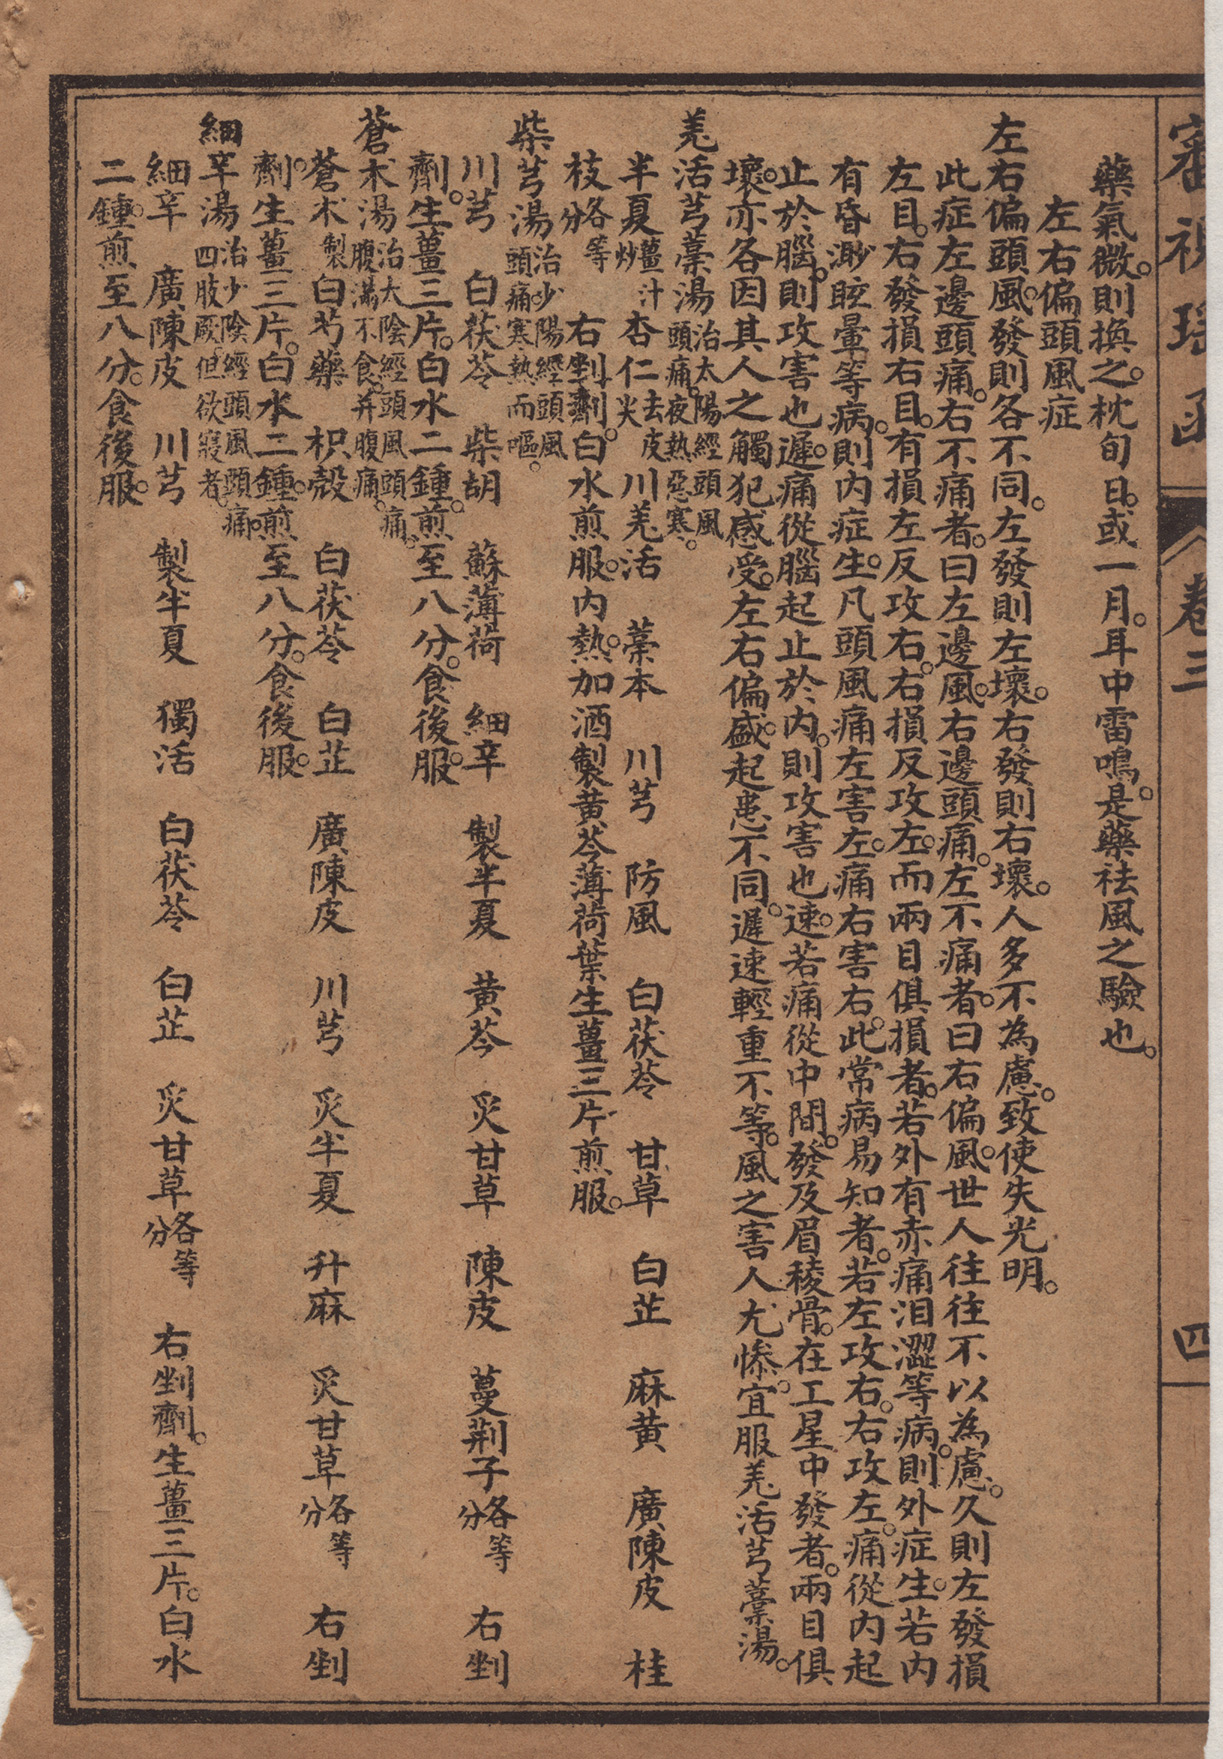 審視瑤函 卷三 四
藥氣微。則換之。枕旬日。或一月。耳中雷鳴。是藥祛風之驗也。
左右偏頭風症
左右偏頭風。發則各不同。左發則左壞。右發則右壞。人多不為慮。致使失光明。
此症左邊頭痛。右不痛者。曰左邊風。右邊頭痛。左不痛者。曰右偏風。世人往往不以為慮。久則左發損
左目。右發損右目。有損左反攻右。右損反攻左。而兩目俱損者。若外有赤痛泪澀等病。則外症生。若內
有昏渺眩暈等病。則內症生。凡頭風痛左害左。痛右害右。此常病易知者。若左攻右。右攻左。痛從內起
止於腦。則攻害也遲。痛從腦起止於內。則攻害也速。若痛從中間。發及眉稜骨。在工星中發者。兩目俱
壞。亦各因其人之觸犯感受。左右偏盛。起患不同。遲速輕重不等。風之害人尤慘。宜服羌活芎藁湯。
羌活芎藁湯 治太陽經頭風頭痛。夜熱惡寒。
半夏薑汁炒 杏仁去皮尖 川羌活 藁本 川芎 防風 白茯苓 甘草 白芷 麻黃 廣陳皮 桂
枝各等分 右剉劑。白水煎服。內熱。加酒製黃芩薄荷葉生薑三片煎服。
柴芎湯 治少陽經頭風頭痛。寒熱而嘔。
川芎 白茯苓 柴胡 蘇薄荷 細辛 製半夏 黃芩 炙甘草 陳皮 蔓荆子各等分 右剉
劑。生薑三片。白水二鍾。煎至八分。食後服。
蒼朮湯 治太陰經頭風頭痛。腹滿不食。并腹痛。
蒼朮製 白芍藥 枳殼 白茯苓 白芷 廣陳皮 川芎 炙半夏 升麻 炙甘草各等分 右剉
劑。生薑三片。白水二鍾。煎至八分。食後服。
細辛湯 治少陰經頭風頭痛。四肢厥。但欲寢者。
細辛 廣陳皮 川芎 製半夏 獨活 白茯苓 白芷 炙甘草各等分 右剉劑。生薑三片。白水
二鍾。煎至八分。食後服。